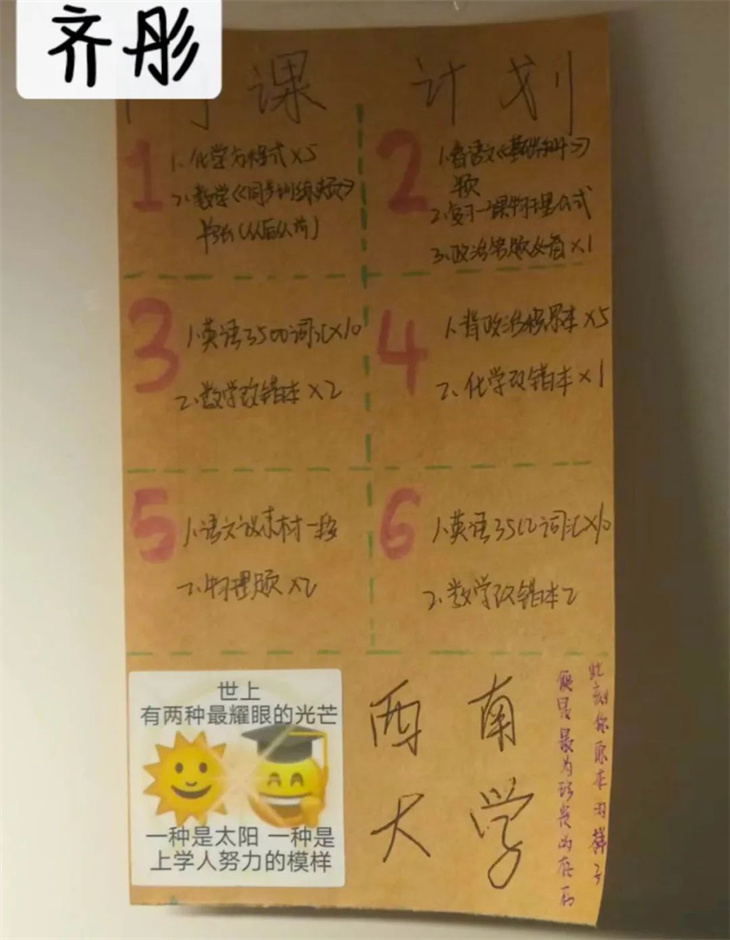 齐彤
课 计划
1
1、化学方程式×5
2、数学《同步训练题》
2
1、看语文《基础知识》
题
2、复习一课物理公式
3、政治错题必背×1
3
1、英语3500词汇×10
2、数学改错本×2
4
1、背政治 本×5
2、化学改错本×1
5
1、语文议素材一段
2、物理题×2
6
1、英语3500词汇×10
2、数学改错本2
世上
有两种最耀眼的光芒
一种是太阳 一种是
上学人努力的模样
西南
大学
此刻你原本的样子
便是最为珍贵的存在